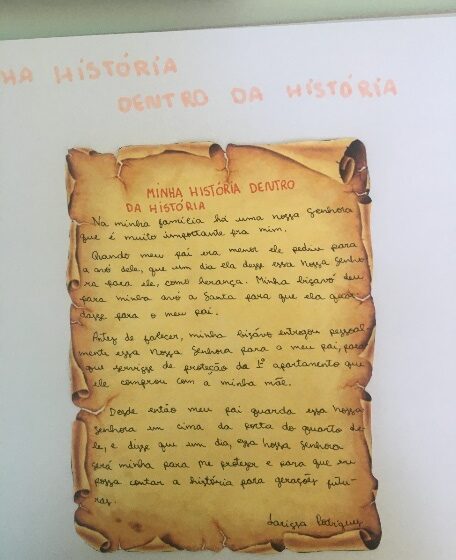 HA HISTÓRIA
DENTRO DA HISTÓRIA
MINHA HISTÓRIA DENTRO
DA HISTÓRIA
Na minha família há uma nossa Senhora
que é muito importante pra mim.
Quando meu pai era menor ele pediu para
a avó dele, que um dia ela desse essa Nossa Senho
ra para ele, como herança. Minha bisavó deu
para minha avó a Santa para que ela guar
dasse para o meu pai.
Antes de falecer, minha bisávo entregou pessoal
mente essa Nossa Senhora para a meu pai, para
que servisse de proteção da 1º apartamento que
ele comprou com a minha mãe.
Desde então meu pai guarda essa Nossa
Senhora em cima da porta do quarto de
le, e disse que um dia, essa nossa Senhora
será minha para me proteger e para que eu
possa contar a história para gerações futu-
ras.
Larissa Rodrigues